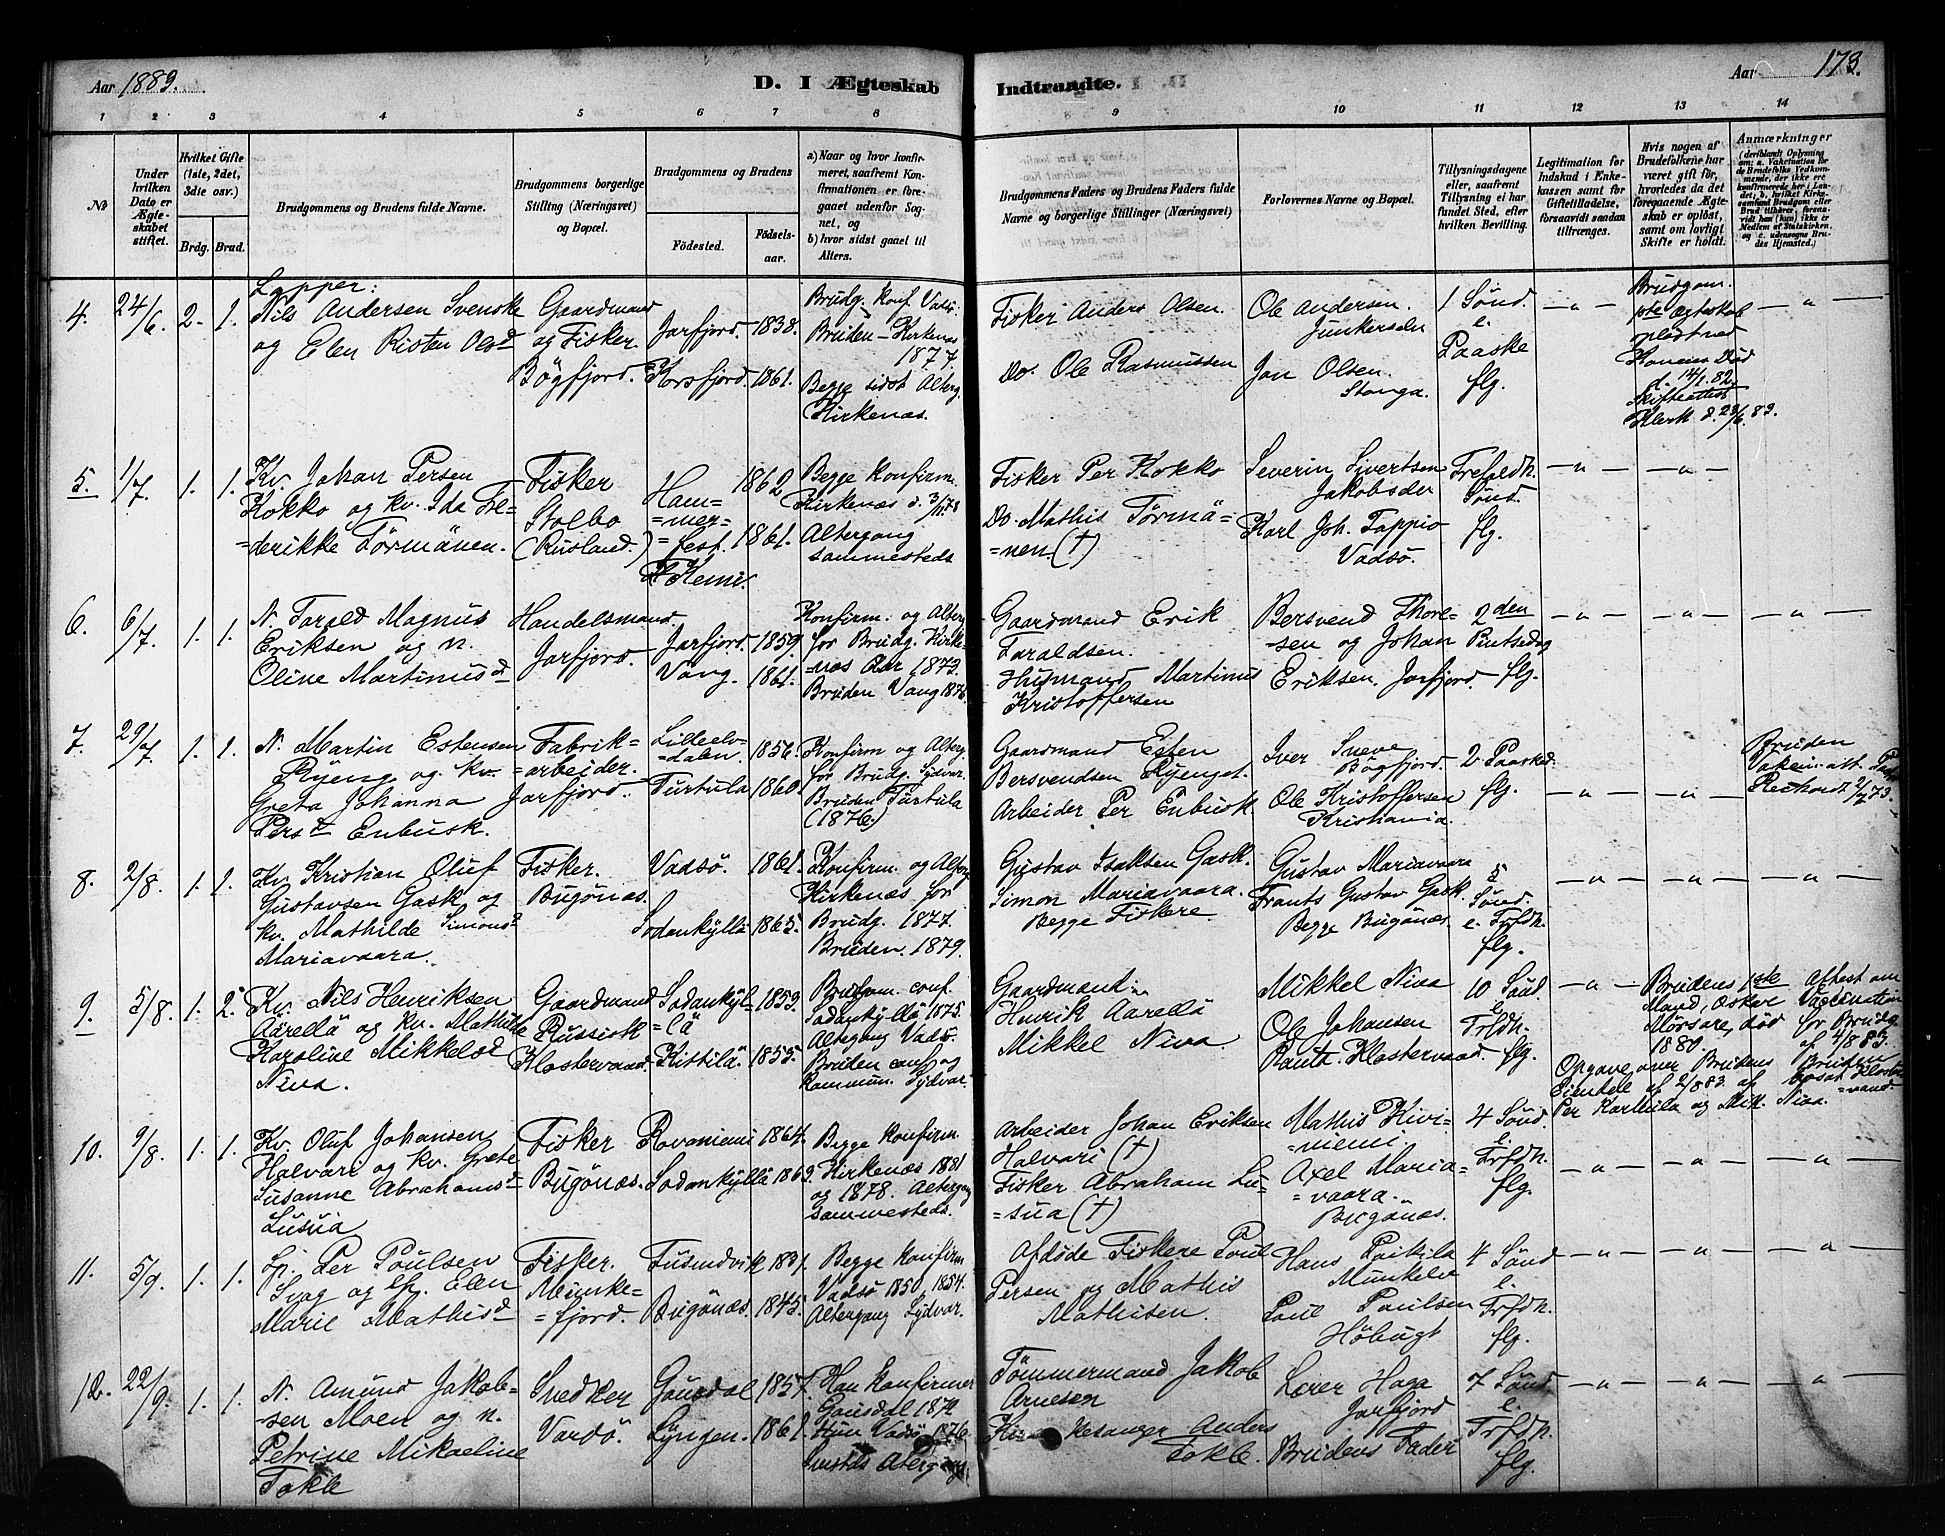 Aar 1883.
D. I Ægteskab
Indtraadte.
Aar 173.
1 2 3 4 5 6 7 8 9 10 11 12 13 14
№
Under hvilken Dato er Ægteskabet stiftet.
Hvilket Gifte (1ste, 2det, 3die osv.)
Brdg. Brud.
Brudgommens og Brudens fulde Navne.
Brudgommens borgerlige Stilling (Næringsvei) og Bopæl.
Brudgommens og Brudens
Fødested.
Fødselsaar.
a) Naar og hvor konfirmeret, saafremt Konfirmationen er foregaaet udenfor Sognet, og
b) hvor sidst gaaet til Alters.
Brudgommens Faders og Brudens Faders fulde Navne og borgerlige Stillinger (Næringsvei)
Forlovernes Navne og Bopæl.
Tillysningsdagene eller, saafremt Tillysning ei har fundet Sted, efter hvilken Bevilling.
Legitimation for Indskud i Enkekassen samt for Giftetilladelse, forsaavidt saadan tiltrænges.
Hvis nogen af Brudefolkene har været gift før, hvorledes da det foregaaende Ægteskab er opløst, samt om lovligt Skifte er holdt.
Anmærkninger
(deriblandt Oplysning om: a. Vakcination for de Brudefolks Vedkommende, der ikke ere konfirmerede her i Landet; b. hvilket Kirkesamfund Brudgom eller Brud tilhører, forsaavidt han (hun) ikke er Medlem af Statskirken, og c. udensogns Brudes Hjemsted.)
4. 24/6. 2. 1.
Lapper:
Nils Andersen Svenske
og Elen Risten Olsd
Gaardmand
og Fisker
Bögfjord.
Jarfjord. 1838.
Korsfjord. 1861.
Brudg. konf. Vadsö.
Bruden – Kirkenæs
1877
Begge sidst Alterg.
Kirkenæs.
Fisker Anders Olsen.
Do. Ole Rasmussen
Ole Andersen.
Junkerselv
Jon Olsen.
Stonga.
1 Sönd.
e.
Paaske
flg.
– " –
Brudgom.
Ægteskab
oplöst ved
Konens Död
d. 14/1. 82
Skifteattest
d. 23/6. 83.
– " –
5. 1/7. 1. 1.
Kv. Johan Persen
Kokko og kv. Ida Fre=
=derikke Törmänen.
Fisker
Stolbo
(Rusland.)
Ham=
=mer=
=fest.
Kemi.
1862
1861.
Begge konfirm.
Kirkenæs
Altergang
sammesteds
Fisker Per Kokko
Do. Mathis Törmä=
=nen. (†)
Severin Sivertsen
Jakobselv
Karl Joh. Tappio
Vadsö.
Trefoldh.
Sönd.
flg.
– " –
– " –
6. 6/7. 1. 1.
N. Tarald Magnus
Eriksen og n.
Oline Martinusd
Handelsmand.
Jarfjord.
Jarfjord. 1859.
Vang. 1861.
Konfirm. og Alterg.
for Brudg. Kirke=
=næs Aar 1873.
Bruden Vang
Gaardmand Erik
Taraldsen.
Husmand Martinus
Kristoffersen
Bersvend Thore=
=sen og Johan
Eriksen. Jarfjord.
2den
Pintsedag
flg.
– " –
– " –
– " –
7. 29/7. 1. 1.
N. Martin Estensen
Ryeng og kv.
Greta Johanna
Persd Enbusk.
Fabrik=
=arbeider.
Jarfjord.
Lilleelv=
=dalen. 1856.
Turtula 1860.
Konfirm og Alterg.
for Brudg. Sydvar.
Bruden Turtula
(1876.)
Gaardmand Esten
Bersvendsen Ryenget.
Arbeider Per Enbusk.
Iver Sneve
Bögfjord.
Ole Kristoffersen
Kristiania.
2 Paasked.
flg.
– " –
– " –
Bruden
Vakcin. att.
8. 2/8. 1. 1.
Kv. Kristian Oluf
Gustavsen Gask og
kv. Mathilde Simonsd
Mariavaara.
Fisker.
Bugönæs.
Vadsö. 1861.
Sodankylä 1865.
Konfirm. og Alterg.
Kirkenæs for
Brudg. 1877.
Bruden. 1879.
Gustav Isaksen Gask.
Simon Mariavaara.
Begge Fiskere
Gustav Mariavaara
Frants Gustav Gask.
Begge Bugönæs.
5
Sönd.
e. Trfdh.
flg.
– " –
– " –
– " –
9. 5/8. 1. 2.
Kv. Nils Henriksen
Aarellä og kv. Mathilde
Karoline Mikkelsd
Niva.
Gaardmand
Russisk
Klostervand
Sodankyl=
=lä 1853.
Kittilä. 1855.
Brudgom. conf.
Sodankyllä 1875.
Altergang Vadsö.
Bruden conf. og
Kommun. Sydvar.
Gaardmænd:
Henrik Aarellä
Mikkel Niva
Mikkel Niva
Ole Johansen
Klostervand.
10 Sönd.
e.
Trfdh.
flg.
– " –
Brudens 1ste
Mand, Oskar
död
1880.
Attest om
Vaccination
for Brudg.
af 4/8 83.
Opgave over Brudens
Eiendel af 2/8 83 af
Per Karthila og Mik. Niva.
Bruden
bosat Kloster=
=vand.
10. 9/8. 1. 1.
Kv. Oluf Johansen
Halvari og kv. Grete
Susanne Abrahamsd
Lusua
Fisker
Bugönæs.
Rovaniemi 1864.
Sodankyllä 1863.
Begge Konfirm.
Kirkenæs 1881
og 1878. Altergang
sammesteds.
Arbeider Johan Eriksen
Halvari (†)
Fisker Abraham Lu=
=sua (†)
Mathis Kivi=
=niemi.
Axel Maria=
=vaara.
Bugönæs.
4 Sönd.
e.
Trfdh.
flg.
– " –
– " –
– " –
11. 5/9. 1. 1.
Lp. Per Poulsen
Svag og lp. Elen
Marie Mathisd
Fisker.
Munke=
=fjord.
1831.
Bugönæs. 1845.
Begge konfirm
Vadsö 1850, 1854.
Altergang Sydvar.
Afdöde Fiskere Poul
Persen og Mathis
Mathisen.
Hans Paikila
Munkelv
Paul Paulsen
Höbugt
4 Sönd
e.
Trfdh.
flg.
– " –
– " –
– " –
12. 22/9. 1. 1.
N. Amund Jakob=
=sen Moen og n.
Petrine Mikaeline
Fokle
Snedker
Vardö.
Gausdal 1857.
Lyngen. 1861.
Han konfirmer
Gausdal
Hun Vadsö 1876.
Tömmermand Jakob
Arnesen
Anders
Fokle.
Lærer Haga
Jarfjord
Brudens Fader
7 Sönd.
e.
Trfdh.
flg.
– " –
– " –
– " –